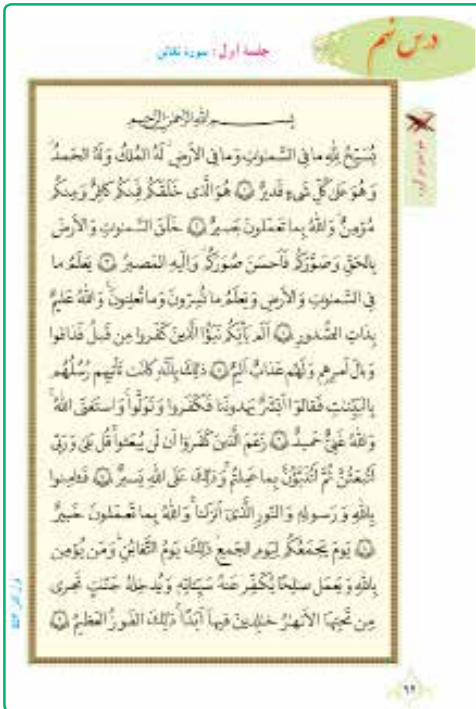 درس نهم
جلسهٔ اول : سورهٔ تغابن
بسم الله الرحمن الرحیم
یُسَبِّحُ لِلّٰهِ ما فِی السَّمٰوٰتِ وَ ما فِی الاَرضِ لَهُ المُلكُ وَ لَهُ الحَمدُ
وَ هُوَ عَلیٰ كُلِّ شَیءٍ قَدیرٌ ۱ هُوَ الَّذی خَلَقَكُم فَمِنكُم كافِرٌ وَ مِنكُم
مُؤمِنٌ وَ اللّٰهُ بِما تَعمَلونَ بَصیرٌ ۲ خَلَقَ السَّمٰوٰتِ وَ الاَرضَ
بِالحَقِّ وَ صَوَّرَكُم فَاَحسَنَ صُوَرَكُم وَ اِلَیهِ المَصیرُ ۳ یَعلَمُ ما
فِی السَّمٰوٰتِ وَ الاَرضِ وَ یَعلَمُ ما تُسِرّونَ وَ ما تُعلِنونَ وَ اللّٰهُ عَلیمٌ
بِذاتِ الصُّدورِ ۴ اَلَم یَأتِكُم نَبَؤُا الَّذینَ كَفَروا مِن قَبلُ فَذاقوا
وَ بالَ اَمرِهِم وَ لَهُم عَذابٌ اَلیمٌ ۵ ذٰلِكَ بِاَنَّهُ كانَت تَأتیهِم رُسُلُهُم
بِالبَیِّنٰتِ فَقالوا اَبَشَرٌ یَهدونَنا فَكَفَروا وَ تَوَلَّوا وَ استَغنَی اللّٰهُ
وَ اللّٰهُ غَنیٌّ حَمیدٌ ۶ زَعَمَ الَّذینَ كَفَروا اَن لَن یُبعَثوا قُل بَلیٰ وَ رَبّی
لَتُبعَثُنَّ ثُمَّ لَتُنَبَّؤُنَّ بِما عَمِلتُم وَ ذٰلِكَ عَلَی اللّٰهِ یَسیرٌ ۷ فَـٔامِنوا
بِاللّٰهِ وَ رَسولِهِ وَ النّورِ الَّذی اَنزَلنا وَ اللّٰهُ بِما تَعمَلونَ خَبیرٌ
۸ یَومَ یَجمَعُكُم لِیَومِ الجَمعِ ذٰلِكَ یَومُ التَّغابُنِ وَ مَن یُؤمِن
بِاللّٰهِ وَ یَعمَل صٰلِحًا یُكَفِّر عَنهُ سَیِّـٔاتِهِ وَ یُدخِلهُ جَنّٰتٍ تَجری
مِن تَحتِهَا الاَنهٰرُ خٰلِدینَ فیها اَبَدًا ذٰلِكَ الفَوزُ العَظیمُ ۹